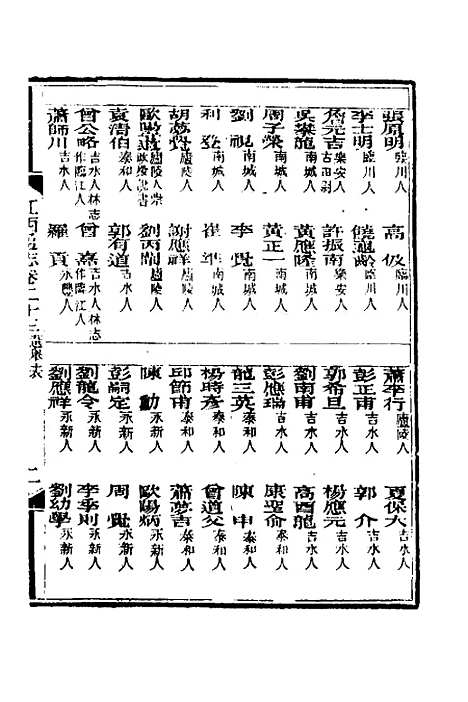 張原明臨川人 高伋臨川人 蕭奎行廬陵人 夏保大吉水人
李士明臨川人 饒遐齡臨川人 彭正甫吉水人 郭介吉水人
詹元吉樂安人古田尉 許振南樂安人 郭希旦吉水人 楊應元吉水人
吳夢龍南城人 黃應隆南城人 劉南甫吉水人 高酉龍吉水人
周子榮南城人 黃正一南城人 彭應瑞吉水人 康聖俞泰和人
劉視南城人 李覺南城人 龍三英泰和人 陳申泰和人
利登南城人 崔準南城人 楊時彥泰和人 曾道父泰和人
胡夢霓廬陵人 謝應祥廬陵人 邱節甫泰和人 蕭夢吉泰和人
歐陽道廬陵人 劉丙開廬陵人 陳勳永新人 歐陽炳永新人
袁溍伯泰和人 郭有道泰和人 彭嗣定永新人 周覺永新人
曾公略吉水人林志作臨江人 曾熹吉水人林志作臨江人 劉龍令永新人 李季則永新人
蕭師川吉水人 羅貢永豐人 劉應祥永新人 劉幼學永新人
江西通志卷二十三選舉表